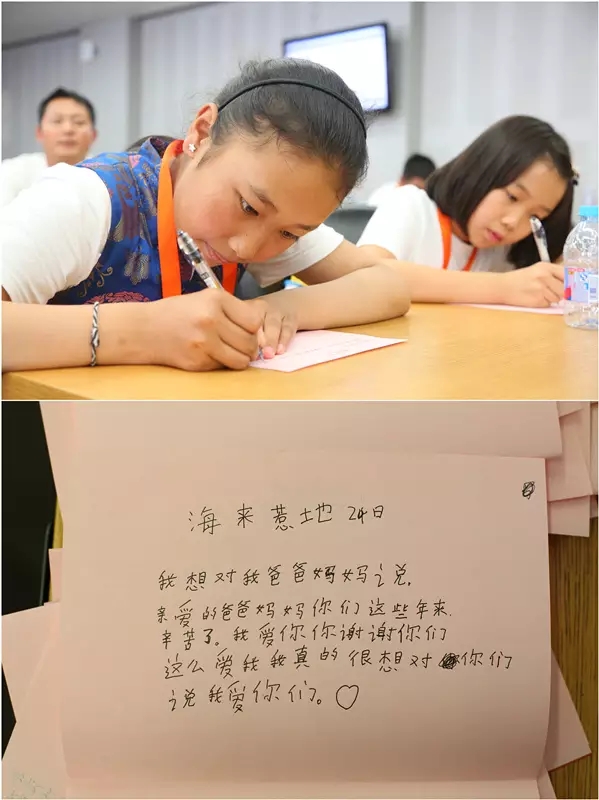 海来惹地 24日
我想对我爸爸妈妈说.
亲爱的爸爸妈妈你们这些年来.
辛苦了。我爱你你谢谢你们
这么爱我我真的很想对你们
说我爱你们。♡